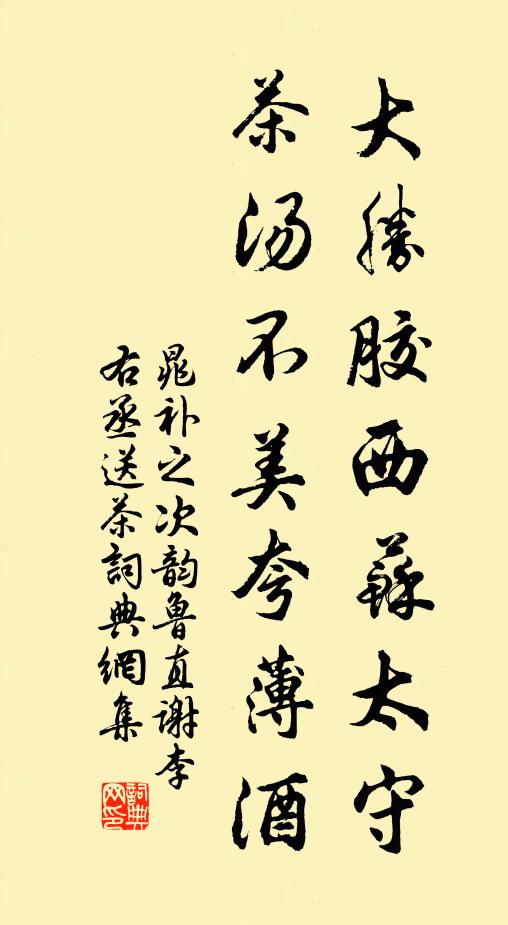 大勝胶西蘇太守
茶汤不美夸薄酒
晁补之次韵魯直谢李
右丞送茶詞典網集
詞典
网印